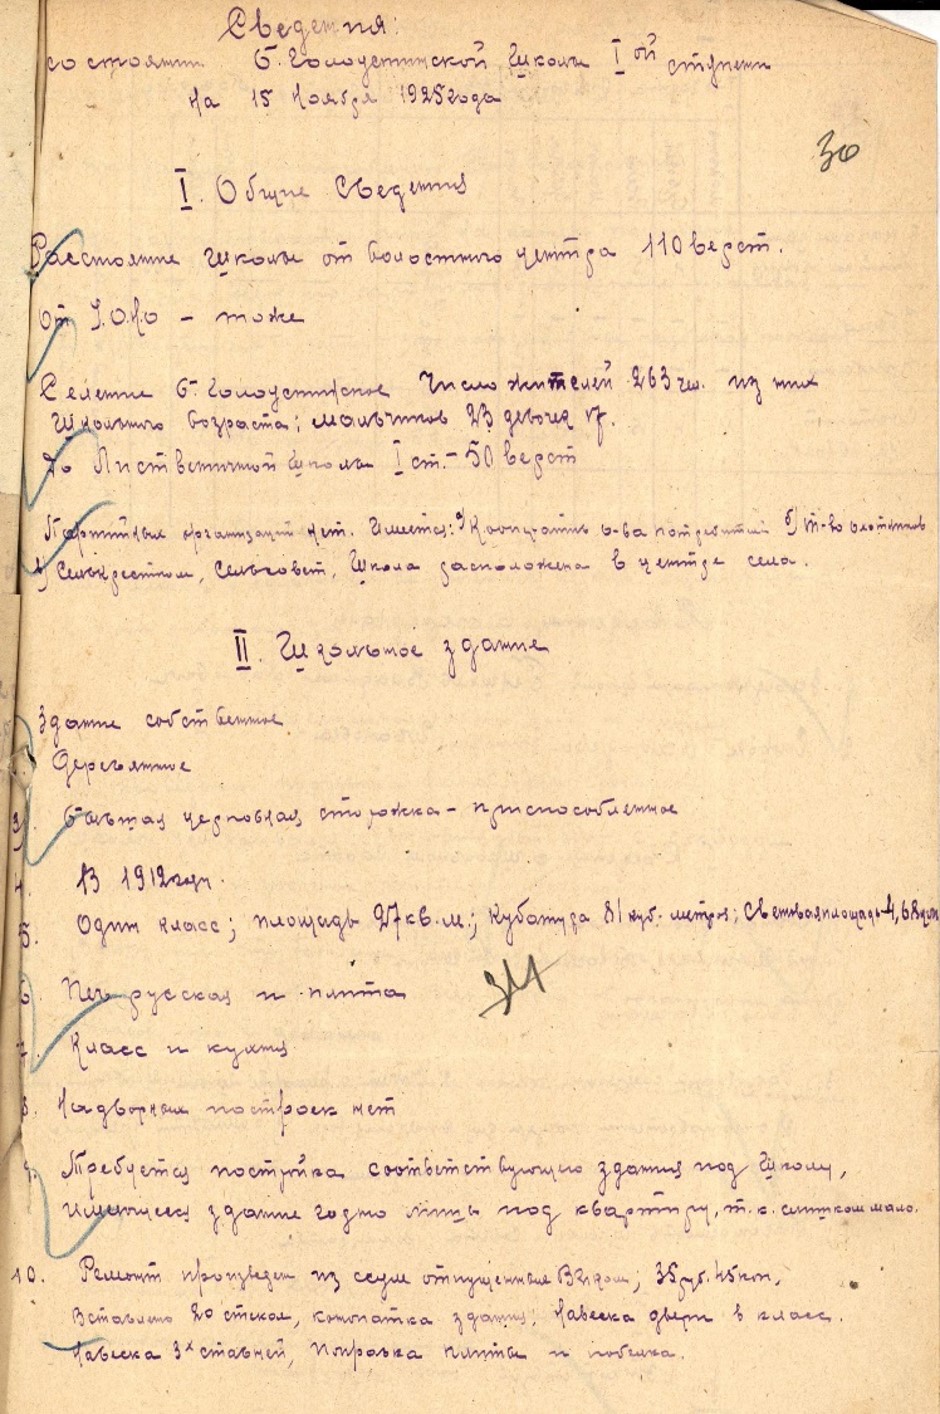 Сведения:
состоянии Б. Голоустинской Школы I ой ступени
на 15 Ноября 1925 года
30
I. Общие Сведения
Расстояние Школы от волостного центра 110 верст.
От У.О.Н.О – тоже
Селение Б. Голоустинское Число жителей 263 чел. из них
Школьного возраста: мальчиков 23 девочек 17.
До Лиственичной Школы I ст. – 50 верст
Партийных организаций нет. Имеется: а) О-ва потребител б) т-во охотников
в) Селькрестком, Сельсовет, Школа расположена в центре села.
II. Школьное здание
Здание собственное
Деревянное
3. бывшая церковная сторожка – приспособленное
4. В 1912 году.
5. Один класс; площадь 27 кв. м.; Кубатура 81 куб. метров; Световая площадь 4,68
6. Печь русская и плита
314
7. Класс и кухня
8. Надворных построек нет
9. Требуется постройка соответствующего здания под Школу,
имеющееся здание годно лишь под квартиру, т.к. слишком мало.
10. Ремонт произведен из сумм отпущенных ВИКом; 35 руб. 45 коп,
Вставлено 20 стекол, конопатка здания; Навеска двери в класс.
Навеска 3х ставней, Поправка плиты и побелка.